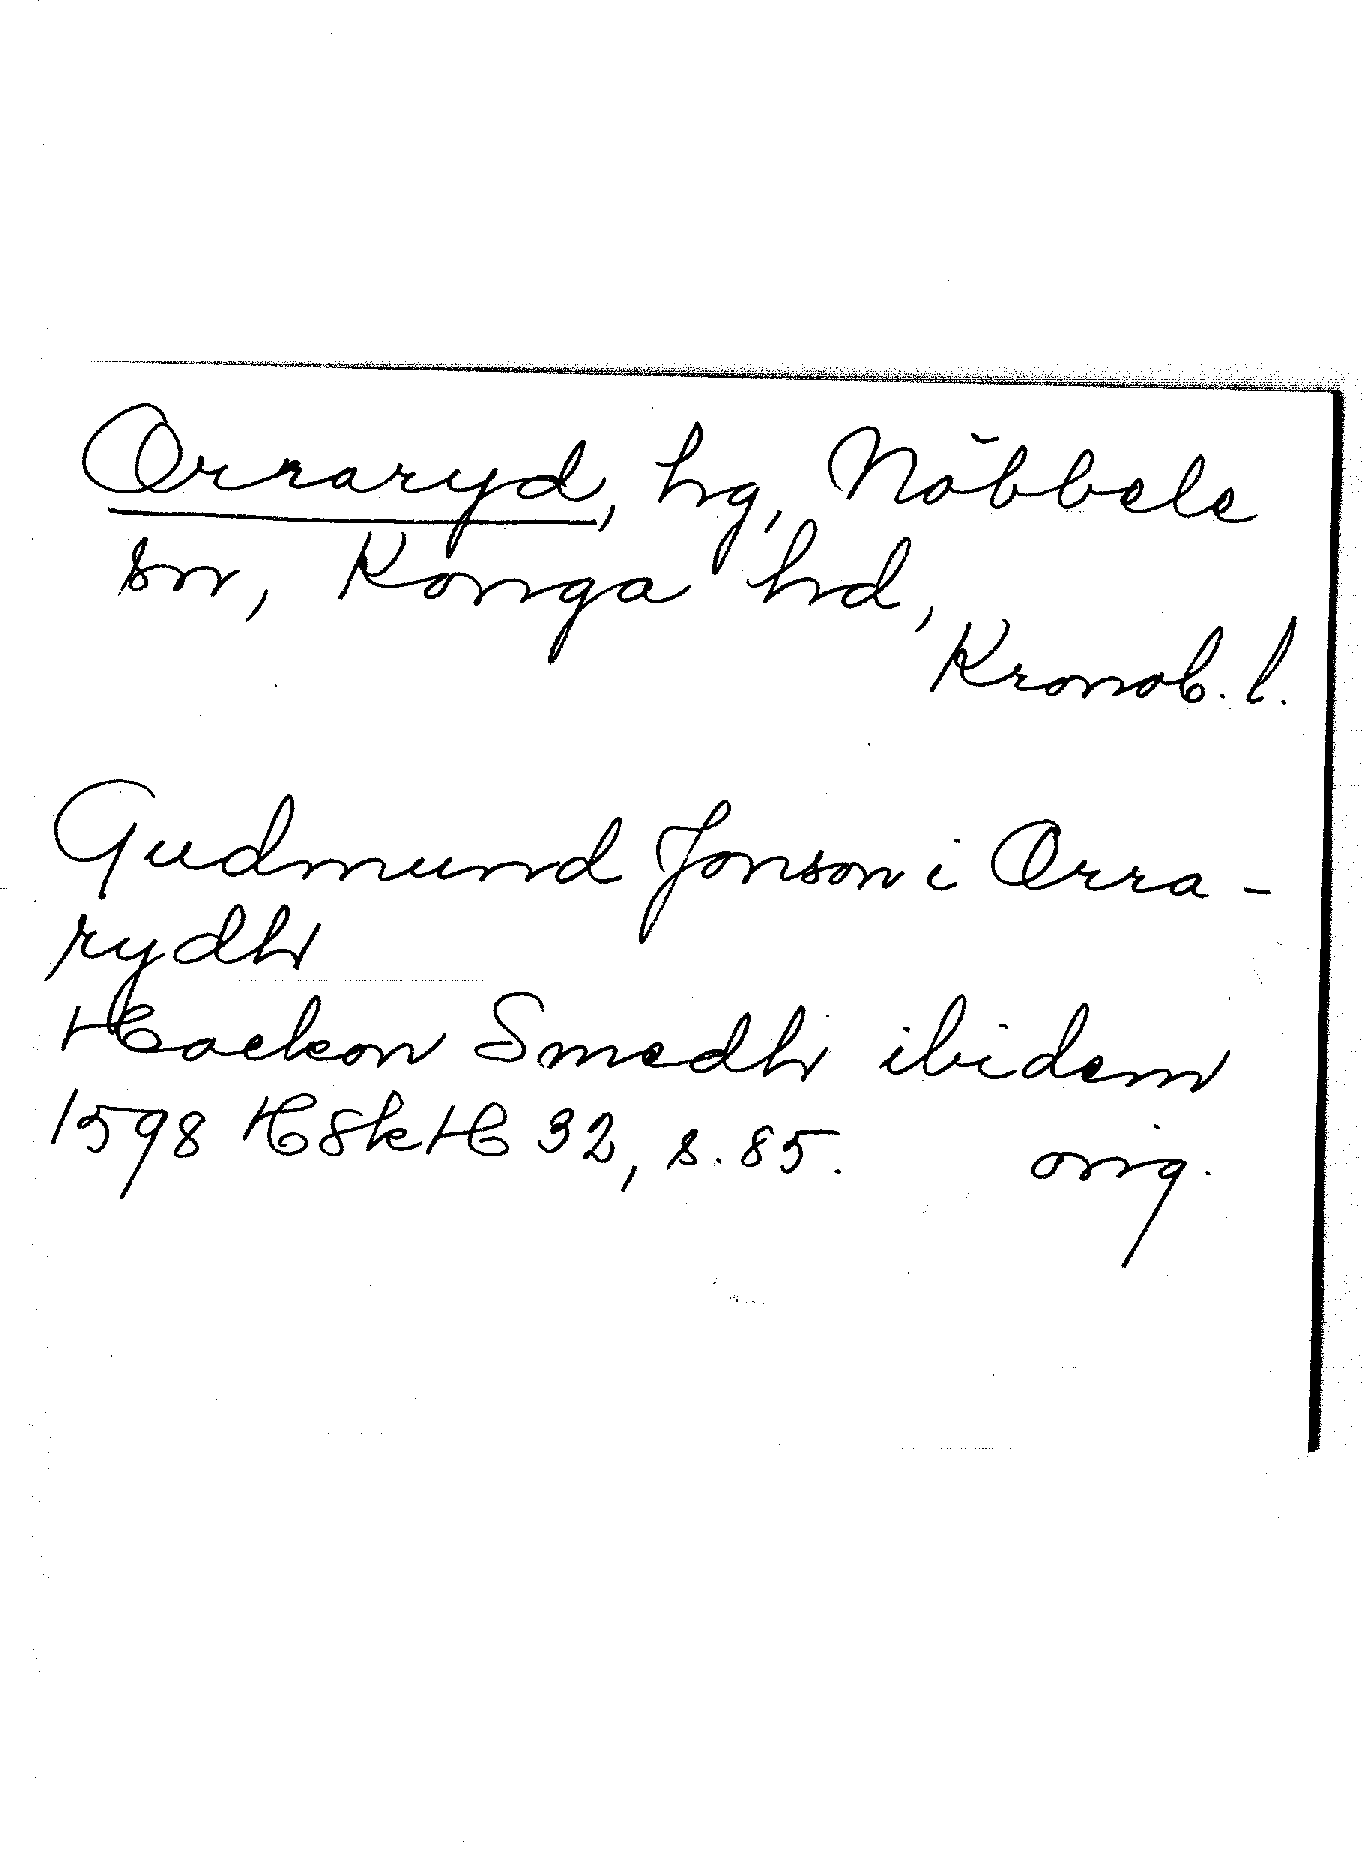 Orraryd, hg, Nöbbele
sn, Konga hd,
Kronob. l.
Gudmund Jonson i Orra-
rydh
Hackon Smedh ibidem
1598 HSkH 32, s. 85. orig.